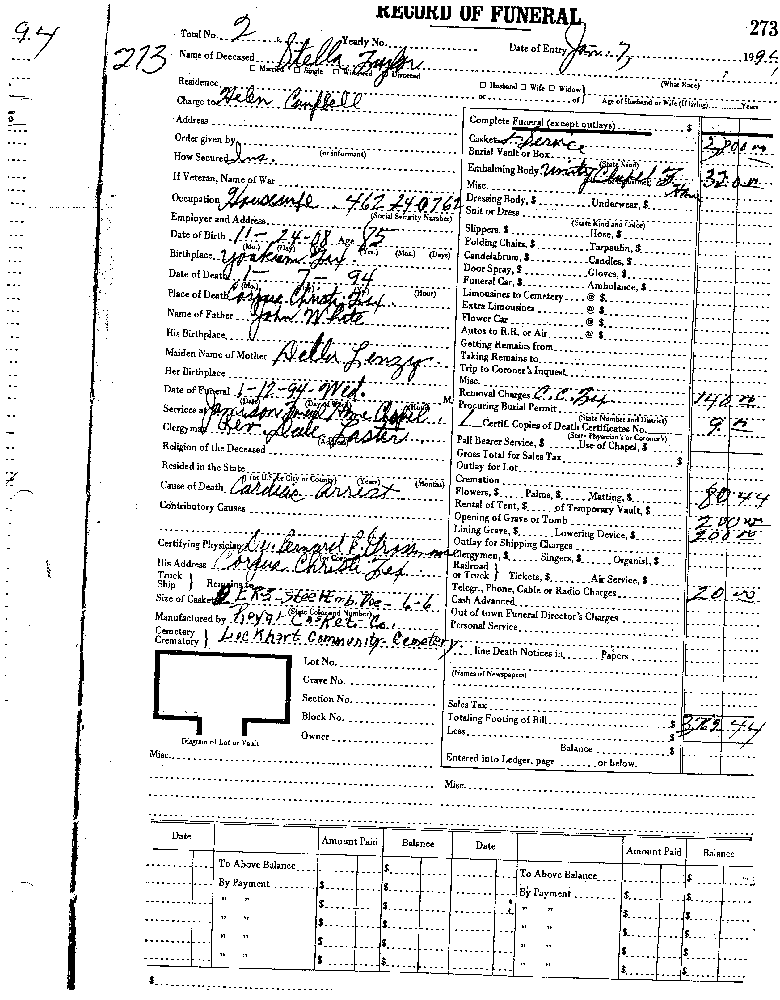 RECORD OF FUNERAL
94
273
Total No. 2 Yearly No. Date of Entry Jan. 7, 199
273
Name of Deceased Stella Taylor
□ Married □ Single □ Widowed □ Divorced
□ Husband □ Wife □ Widow (What Race)
Residence
or of Age of Husband or Wife (if living) Years
Charge to Helen Campbell
Address
Order given by (or informant)
How Secured Ins.
If Veteran, Name of War
Occupation Housewife 462 24 0762
(Social Security Number)
Employer and Address
Date of Birth 11-24-08 Age
(Mo.) (Day) (Yrs.) (Mos.) (Days)
Birthplace Yoakum Tex
Date of Death 1-7-94
(Hour)
Place of Death Corpus Christi Tex.
Name of Father John White
His Birthplace
Maiden Name of Mother Della Lenzy
Her Birthplace
Date of Funeral 1-12-94-Wed. M.
Services at Jamison Funeral Home Chapel
Clergyman Rev. Dale Laster
Religion of the Deceased
Resided in the State
(or U.S. or City or County) (Years) (Months)
Cause of Death Cardiac Arrest
Contributory Causes
Certifying Physician Dr. Bernard
His Address Corpus Christi Tex
Truck Ship } Remains to
Size of Casket 6-6
(State Color and Number)
Manufactured by Royal Casket Co.
Cemetery Crematory } Lockhart Community Cemetery
Lot No.
Grave No.
Section No.
Block No.
Owner
Diagram of Lot or Vault
Misc.
Complete Funeral (except outlays) $
Casket & Service
Burial Vault or Box
(State Kind)
Embalming Body Unity Chapel F. Home 320.00
Misc.
Dressing Body, $ Underwear, $
Suit or Dress
(State Kind and Color)
Slippers, $ Hose, $
Folding Chairs, $ Tarpaulin, $
Candelabrum, $ Candles, $
Door Spray, $ Gloves, $
Funeral Car, $ Ambulance, $
Limousines to Cemetery @ $
Extra Limousines @ $
Flower Car @ $
Autos to R.R. or Air @ $
Getting Remains from
Taking Remains to
Trip to Coroner's Inquest
Misc.
Removal Charges C.C. Tex 140.00
Procuring Burial Permit
(State Number and District)
1 Certif. Copies of Death Certificates No. 9.00
(State Physician's or Coroner's)
Pall Bearer Service, $ Use of Chapel, $
Gross Total for Sales Tax $
Outlay for Lot
Cremation
Flowers, $ Palms, $ Matting, $ 80.44
Rental of Tent, $ of Temporary Vault, $
Opening of Grave or Tomb 200.00
Lining Grave, $ Lowering Device, $ 200.00
Outlay for Shipping Charges
Clergymen, $ Singers, $ Organist, $
Railroad or Truck } Tickets, $ Air Service, $
Telegr., Phone, Cable or Radio Charges 20.00
Cash Advanced
Out of town Funeral Director's Charges
Personal Service
line Death Notices in Papers
(Names of Newspapers)
Sales Tax
Totaling Footing of Bill $
Less $
Balance $
Entered into Ledger, page or below.
Misc.
Date Amount Paid Balance Date Amount Paid Balance
To Above Balance $ To Above Balance $
By Payment $ $ By Payment $ $
" " $ $ " " $ $
" " $ $ " " $ $
" " $ $ " " $ $
" " $ $ " " $ $
$